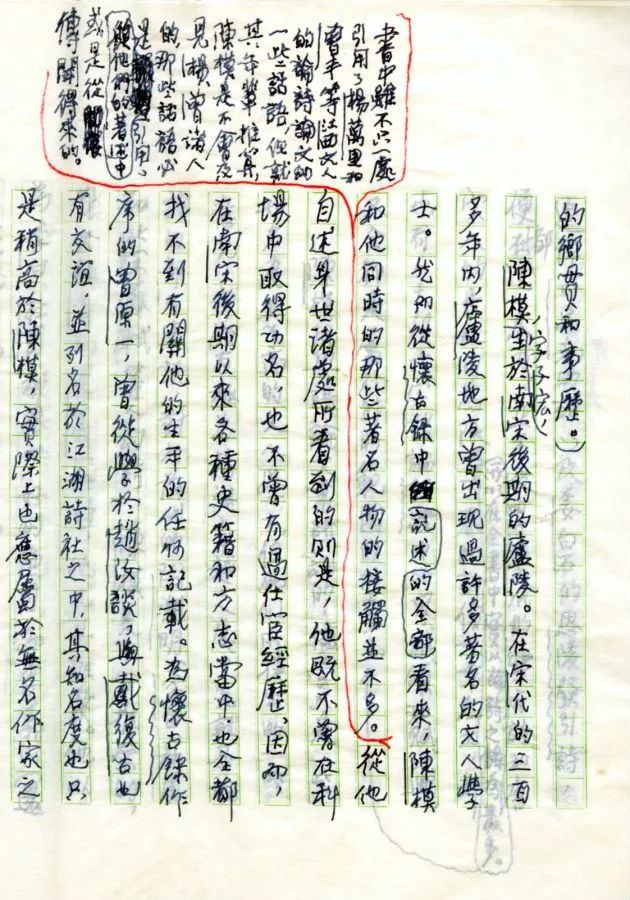 書中雖不只一處
引用了楊萬里和
曾丰等江西文人
的論詩論文的
一些話語，但就
其年輩推算，
陳模是不會及
見楊、曾諸人
的，那些話語必
是引用了
他們的著述中
或是從
傳聞得來的。
的鄉貫和事歷。）
陳模，字子宏，生於南宋後期的廬陵。在宋代的三百
多年內，廬陵地方曾出現過許多著名的文人學
士。我們從懷古錄中記述的全部看來，陳模
和他同時的那些著名人物的接觸並不多。從他
自述身世諸處所看到的則是，他既不曾在科
場中取得功名，也不曾有過仕宦經歷，因而，
在南宋後期以來各種史籍和方志當中，也全都
找不到有關他的生平的任何記載。為懷古錄作
序的曾原一，曾從學於趙汝談，與戴復古也
有交誼，並列名於江湖詩社之中，其知名度也只
是稍高於陳模，實際上也應屬於無名作家之